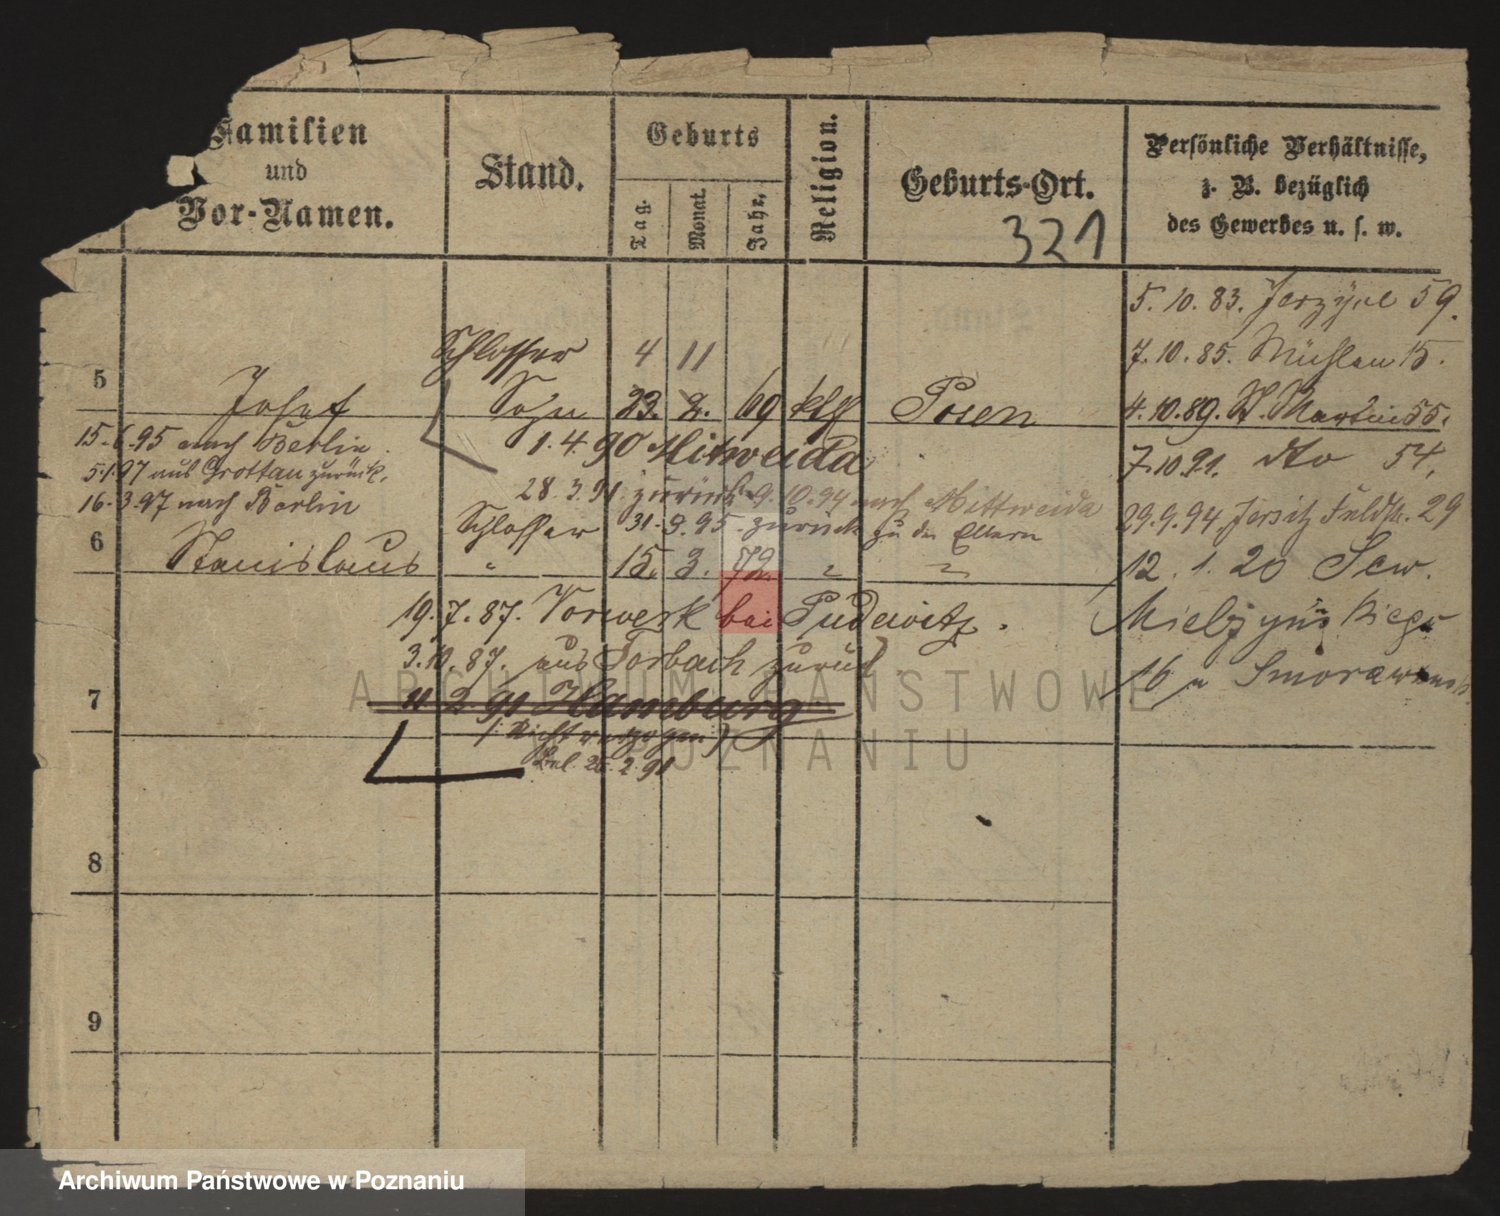 Familien
und
Vor-Namen.
Stand.
Geburts
Tag.
Monat.
Jahr.
Religion.
Geburts-Ort.
321
Persönliche Verhältnisse,
z. B. bezüglich
des Gewerbes u. s. w.
5. 10. 83. 59.
Schlosser 4 11
7. 10. 85. Mühlen 15.
5
Josef Sohn 23. 2. 69 kth Posen
4. 10. 89. St. Martin 55.
15.6.95 nach Berlin.
1. 4. 90 Mitweida
7.10 91. dto 54,
5.1.97 aus Grottau zurück.
28. 3. 91. zurück 9. 10. 94 nach Mittweida
16.3.97 nach Berlin
29. 9. 94. Jersitz 29
6
Schlosser 31. 9. 95. zurück zu den Eltern
Stanislaus " 15. 3. 72 " "
12. 1. 20
19. 7. 87. Vorwerk bei Pudewitz.
3.10.87. aus Forbach zurück
16 u
7
11 2. 91 Hamburg
(Nicht verzogen)
26. 2. 91
8
9
ARCHIWUM PAŃSTWOWE
POZNANIU
Archiwum Państwowe w Poznaniu